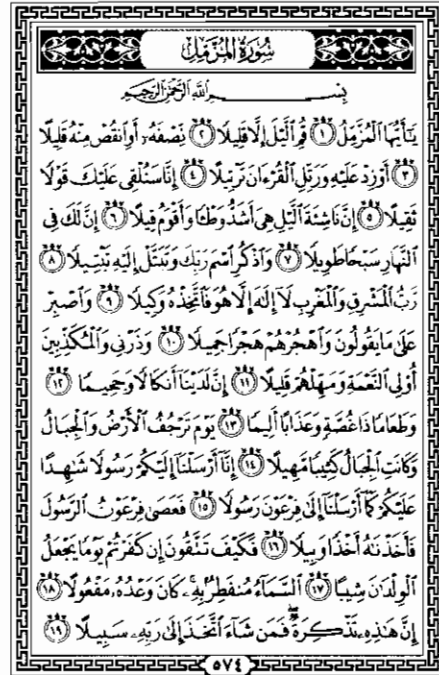 سُورَةُ المُزَّمِّلِ
بِسْمِ اللَّهِ الرَّحْمَٰنِ الرَّحِيمِ
يَٰٓأَيُّهَا ٱلْمُزَّمِّلُ ١ قُمِ ٱلَّيْلَ إِلَّا قَلِيلًا ٢ نِّصْفَهُۥٓ أَوِ ٱنقُصْ مِنْهُ قَلِيلًا
٣ أَوْ زِدْ عَلَيْهِ وَرَتِّلِ ٱلْقُرْءَانَ تَرْتِيلًا ٤ إِنَّا سَنُلْقِى عَلَيْكَ قَوْلًا
ثَقِيلًا ٥ إِنَّ نَاشِئَةَ ٱلَّيْلِ هِىَ أَشَدُّ وَطْـًٔا وَأَقْوَمُ قِيلًا ٦ إِنَّ لَكَ فِى
ٱلنَّهَارِ سَبْحًا طَوِيلًا ٧ وَٱذْكُرِ ٱسْمَ رَبِّكَ وَتَبَتَّلْ إِلَيْهِ تَبْتِيلًا ٨
رَّبُّ ٱلْمَشْرِقِ وَٱلْمَغْرِبِ لَآ إِلَٰهَ إِلَّا هُوَ فَٱتَّخِذْهُ وَكِيلًا ٩ وَٱصْبِرْ
عَلَىٰ مَا يَقُولُونَ وَٱهْجُرْهُمْ هَجْرًا جَمِيلًا ١٠ وَذَرْنِى وَٱلْمُكَذِّبِينَ
أُو۟لِى ٱلنَّعْمَةِ وَمَهِّلْهُمْ قَلِيلًا ١١ إِنَّ لَدَيْنَآ أَنكَالًا وَجَحِيمًا ١٢
وَطَعَامًا ذَا غُصَّةٍ وَعَذَابًا أَلِيمًا ١٣ يَوْمَ تَرْجُفُ ٱلْأَرْضُ وَٱلْجِبَالُ
وَكَانَتِ ٱلْجِبَالُ كَثِيبًا مَّهِيلًا ١٤ إِنَّآ أَرْسَلْنَآ إِلَيْكُمْ رَسُولًا شَٰهِدًا
عَلَيْكُمْ كَمَآ أَرْسَلْنَآ إِلَىٰ فِرْعَوْنَ رَسُولًا ١٥ فَعَصَىٰ فِرْعَوْنُ ٱلرَّسُولَ
فَأَخَذْنَٰهُ أَخْذًا وَبِيلًا ١٦ فَكَيْفَ تَتَّقُونَ إِن كَفَرْتُمْ يَوْمًا يَجْعَلُ
ٱلْوِلْدَٰنَ شِيبًا ١٧ ٱلسَّمَآءُ مُنفَطِرٌۢ بِهِۦ كَانَ وَعْدُهُۥ مَفْعُولًا ١٨
إِنَّ هَٰذِهِۦ تَذْكِرَةٌ فَمَن شَآءَ ٱتَّخَذَ إِلَىٰ رَبِّهِۦ سَبِيلًا ١٩
٥٧٤